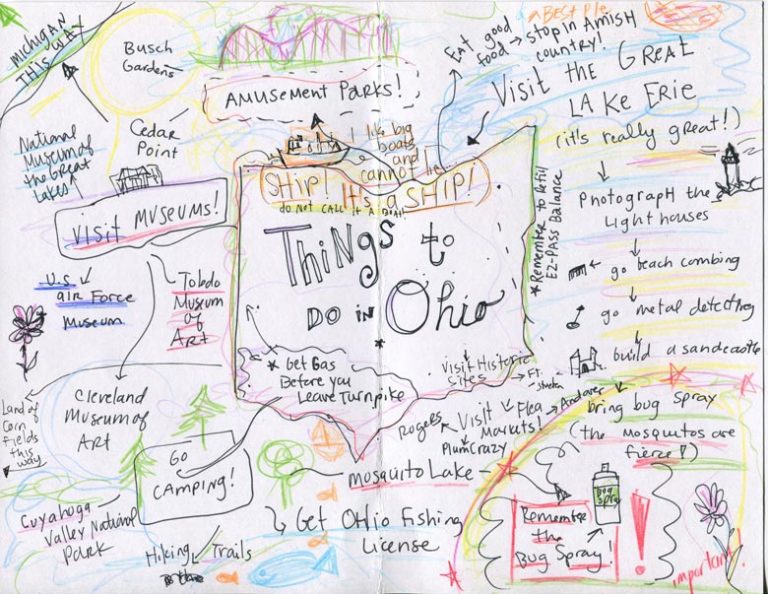 MICHIGAN
THIS WAY
Busch
Gardens
Cedar
Point
AMUSEMENT PARKS!
National
Museum of
the Great
Lakes
VISIT MUSEUMS!
U.S
air Force
Museum
Toledo
Museum
of
Art
Cleveland
Museum of
Art
Land of
Corn
fields
this
way
GO
CAMPING!
Cuyahoga
Valley National
Park
Hiking Trails
I like big
boats
and
cannot lie
SHIP! It's a SHIP!
do NOT CALL IT A BOAT!
Things to
DO iN Ohio
* Get Gas
Before you
Leave Turnpike
*Remember to Refill
EZ-PASS Balance
Visit Historic
sites
Ft.
Visit Flea
Markets!
Rogers
Plumcrazy
Andover
Mosquito Lake
Get Ohio Fishing
License
Eat good
food
stop in Amish
country!
a BEST Pie
Visit the Great
Lake Erie
(it's really great!)
Photograph the
Light houses
go beach combing
go metal detecting
build a sandcastle
bring bug spray
(the mosquitos are
fierce!)
Remember
the
Bug Spray!
Bug
Spray
!
important!